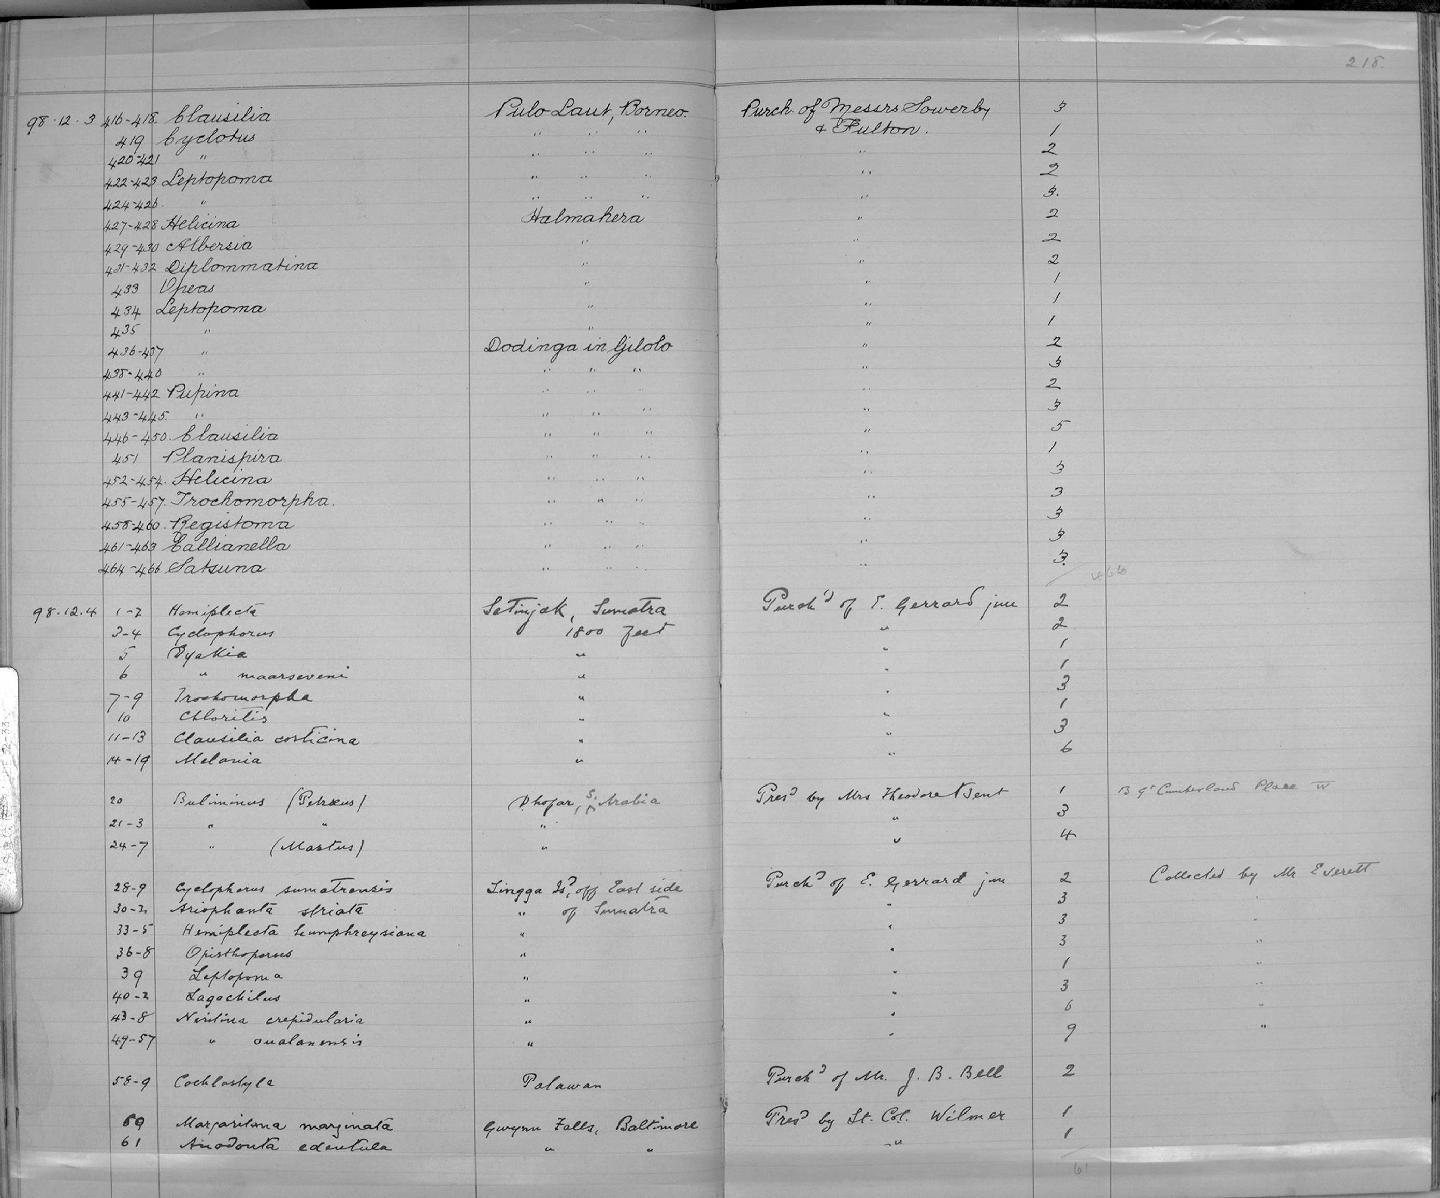 218.
98.12.3 416-418. Clausilia Pulo Laut, Borneo. Purch. of Messrs Sowerby 3
419 Cyclotus " " " & Fulton. 1
420-421 " " " " " 2
422-423 Leptopoma " " " " 2
424-426 " " " " " 3.
427-428 Helicina Halmahera " 2
429-430 Albersia " " 2
431-432 Diplommatina " " 2
433 Opeas " " 1
434 Leptopoma " " 1
435 " " " 1
436-437 " Dodinga in Gilolo " 2
438-440 " " " " " 3
441-442 Pupina " " " " 2
443-445. " " " " " 3
446-450. Clausilia " " " " 5
451 Planispira " " " " 1
452-454. Helicina " " " " 3
455-457. Trochomorpha. " " " " 3
458-460. Registoma " " " " 3
461-463 Callianella " " " " 3
464-466 Satsuma " " " " 3.
466
98.12.4 1-2 Hemiplecta Setinjak, Sumatra Purchd of E. Gerrard jun 2
3-4 Cyclophorus 1800 feet " 2
5 Dyakia " " 1
6 " maarseveni " " 1
7-9 Trochomorpha " " 3
10 Chloritis " " 1
11-13 Clausilia corticina " " 3
14-19 Melania " " 6
20 Buliminus (Petræus) Dhofar, S. Arabia Presd by Mrs Theodore Bent 1 13 Gt Cumberland Place W
21-3 " " " " 3
24-7 " (Mastus) " " 4
28-9 Cyclophorus sumatrensis Lingga Isd, off East side Purchd of E. Gerrard jun 2 Collected by Mr Everett
30-2 Ariophanta striata " of Sumatra " 3 "
33-5 Hemiplecta humphreysiana " " 3
36-8 Opisthoporus " " 3 "
39 Leptopoma " " 1 "
40-2 Lagochilus " " 3 "
43-8 Neritina crepidularia " " 6 "
49-57 " oualanensis " " 9 "
58-9 Cochlostyla Palawan Purchd of Mr. J. B. Bell 2
60 Margaritana marginata Gwynn Falls, Baltimore Presd by Lt. Col. Wilmer 1
61 Anodonta edentula " " " 1
61